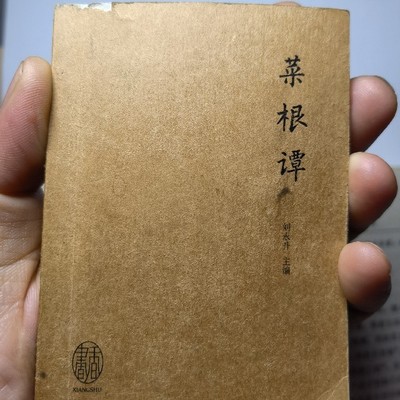 菜根谭
刘永升 主编
書香
XIANGSHU